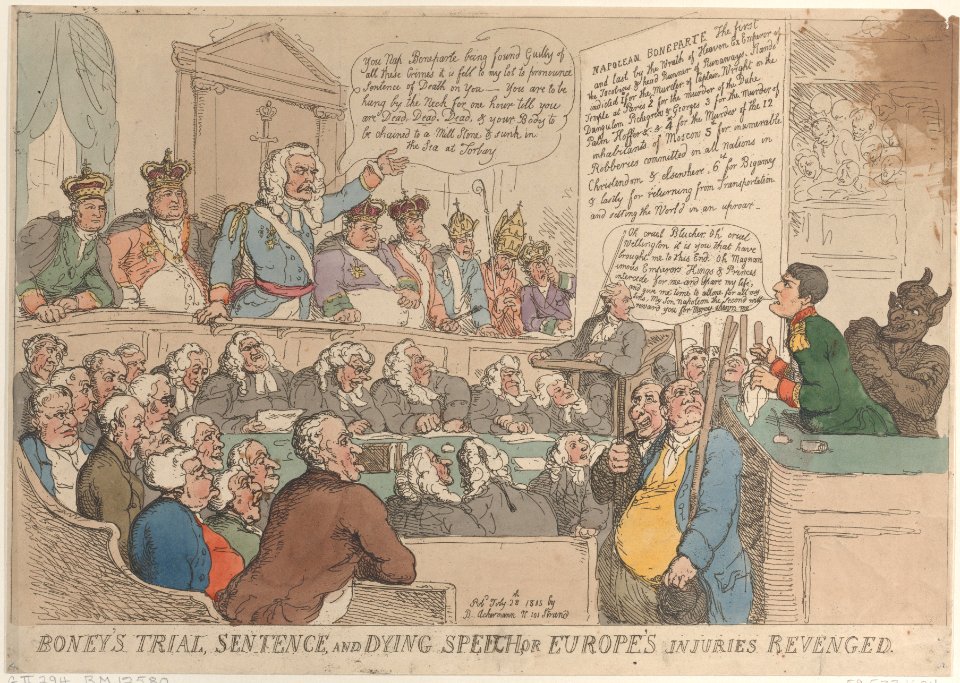 You Nap Boneparte being found Guilty of
all these Crimes it is fell to my lot to pronounce
Sentence of Death on You — You are to be
hung by the Neck for one hour till you
are Dead, Dead, Dead, & your Body to
be chained to a Mill Stone & sunk in
the Sea at Torbay
NAPOLEAN BONEPARTE The first
and last by the Wrath of Heaven Ex Emperor of
the Jacobins & head Runner of Runaways, Stands
indicted 1st for the Murder of Captain Wright in the
Temple at Paris 2 for the murder of the Duke
Dangulem Pichegrew & Georges 3 for the Murder of
Palm Hoffer &c &c 4 for the Murder of the 12
inhabitants of Moscow 5 for inumerable
Robberies committed on all Nations in
Christendom & elsewhere. 6th for Bigamy
& lastly for returning from Transportation
and setting the World in an uproar —
Oh cruel Blucher, Oh! cruel
Wellington it is you that have
brought me to this End. Oh Magnani
imous Emperors Kings & Princes
intercede for me and spare my life,
and give me time to attone for all my
My Son Napolean the Second will
reward you for Mercy shewn me
Pubd July 28th 1815 by
R. Ackermann No 101 Strand
BONEY'S TRIAL, SENTENCE, AND DYING SPEECH OR EUROPE'S INJURIES REVENGED.
G II 294 BM 12580